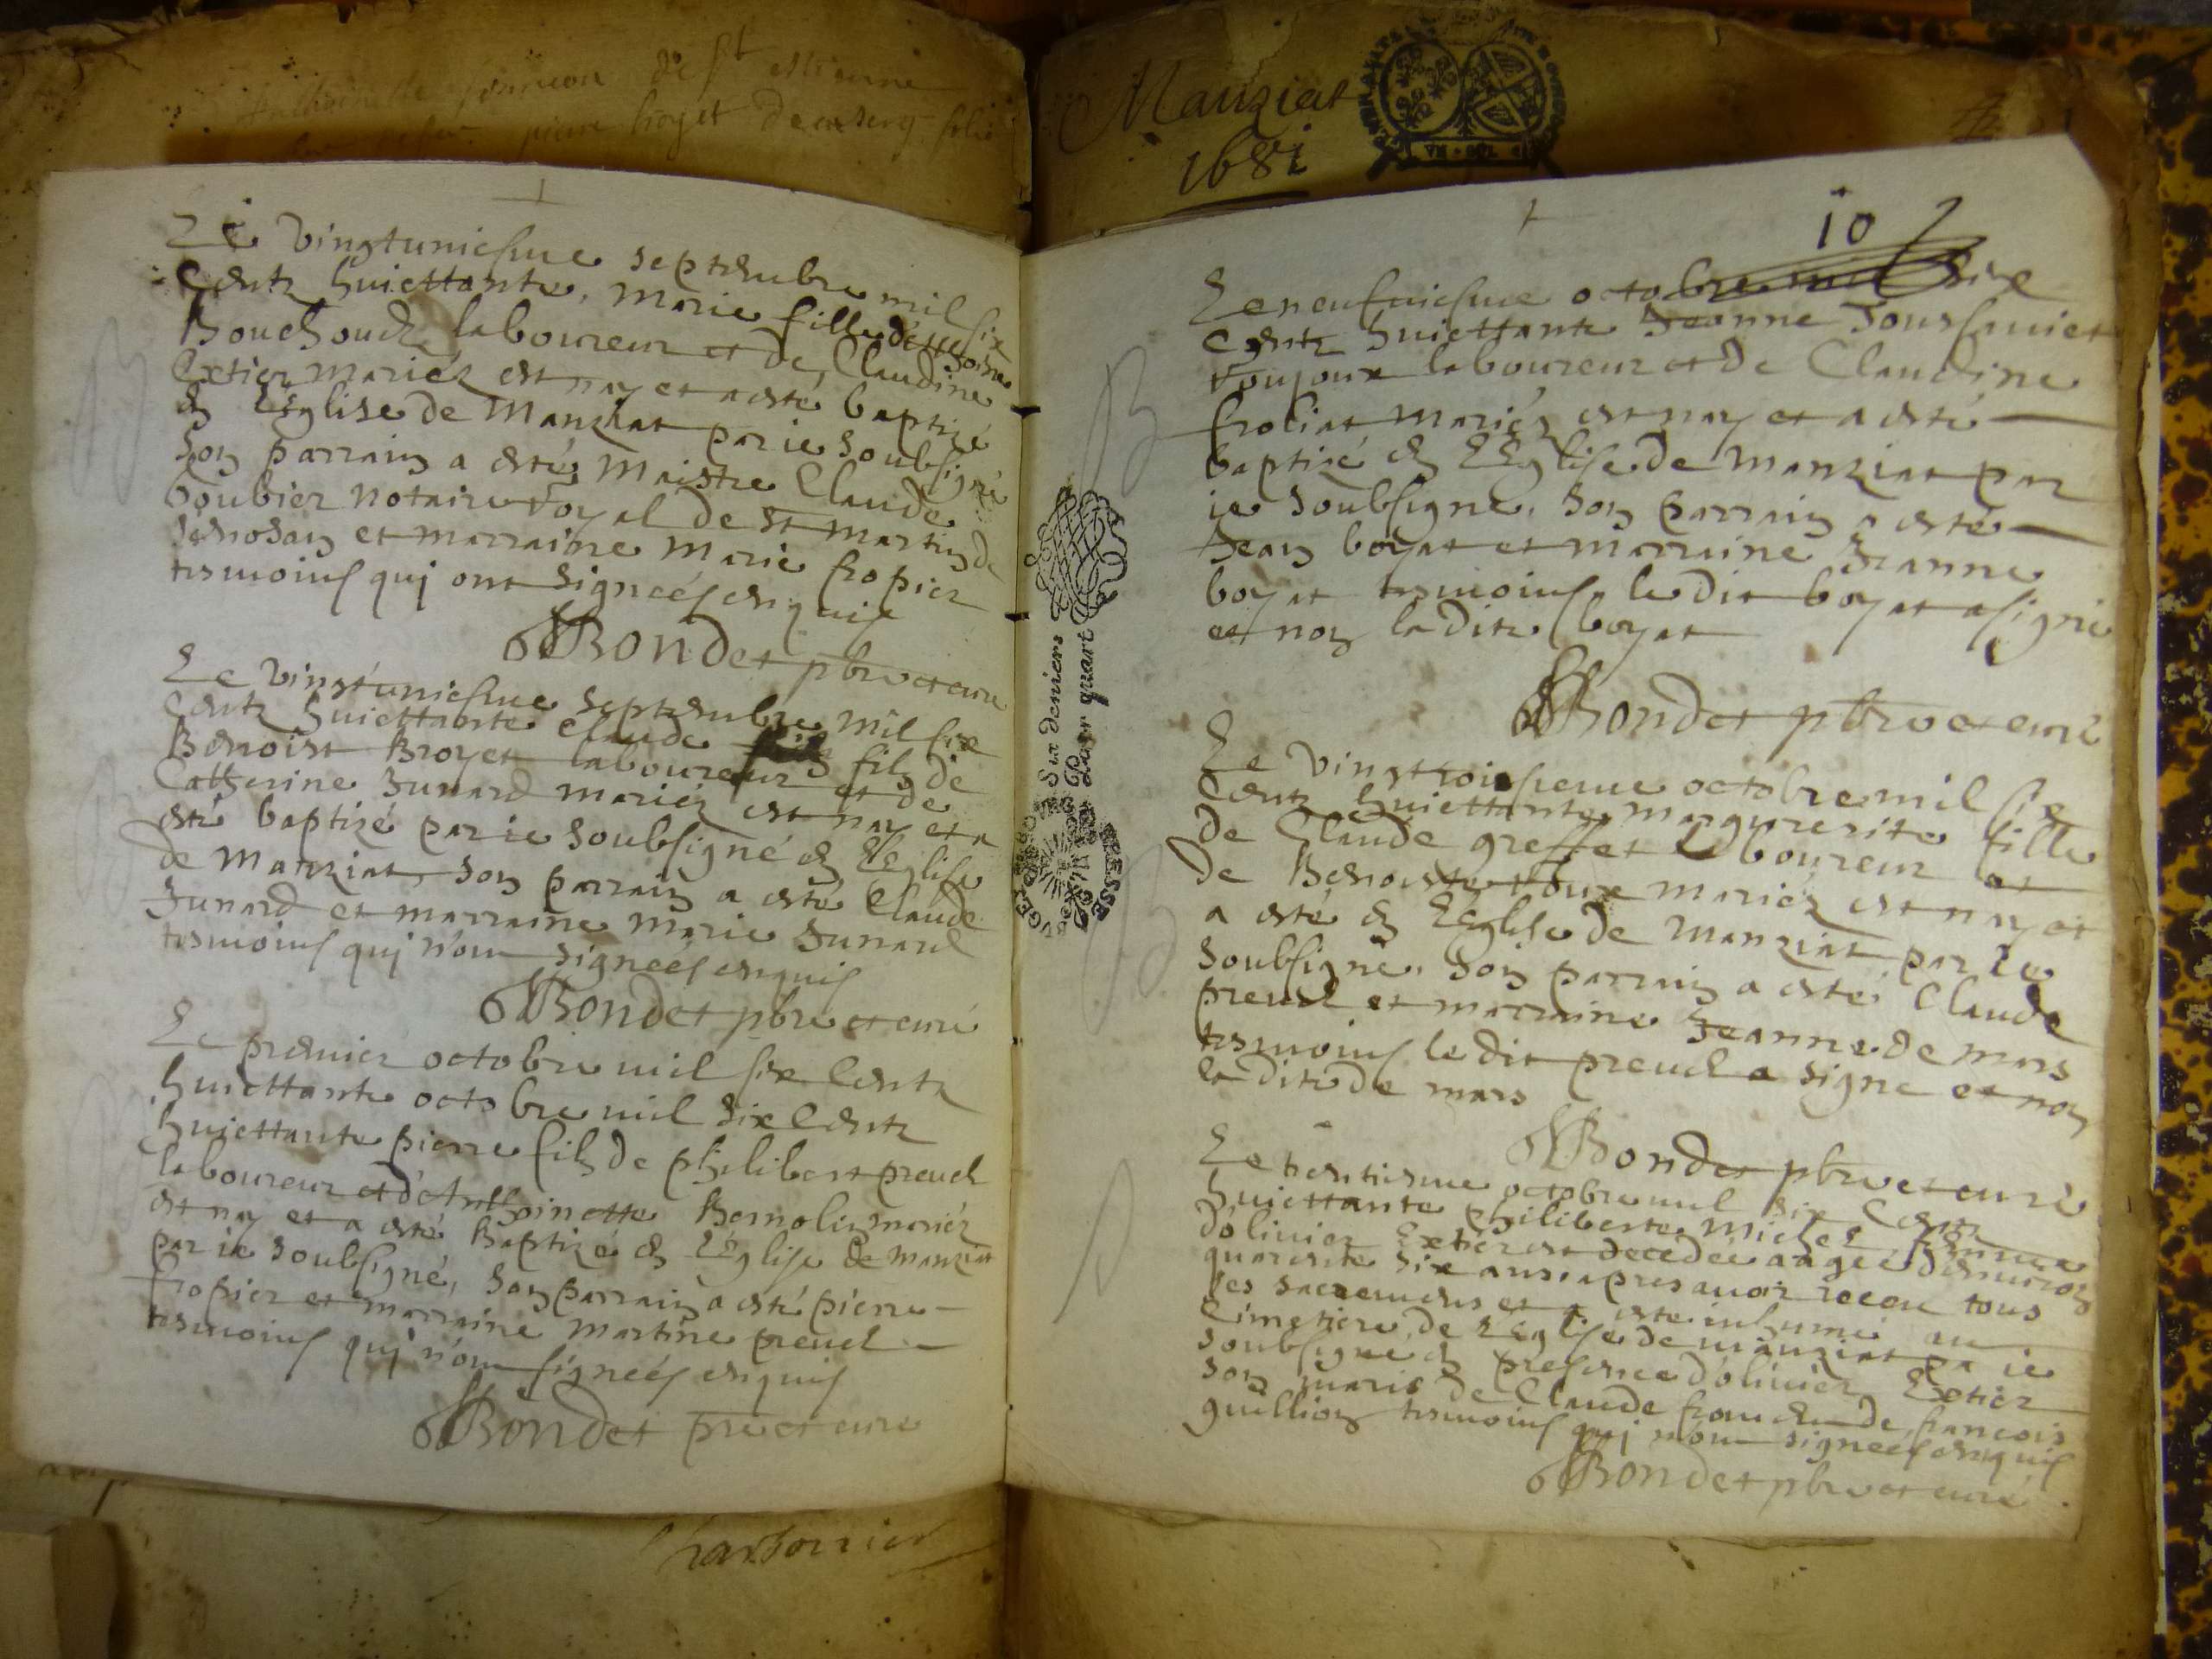 de st estienne
pierre
Le vingtuniesme septembre mil six
Centz huiettante, Marie fille de
Bouchoud laboureur et de Claudine
Extier mariéz est nay et a esté baptizé
en LEglise de Manziat par ie soubsigné
Son parrain a esté Maistre Claude
boubier Notaire royal de st martin de
senosan et marraine Marie fropier
tesmoins qui ont signeés enquis
Bondet pbre et curé
Le vingtuniesme septembre mil six
Centz huiettante Claude filz de
Benoist Broyet laboureur et de
Catherine Junard mariéz est nay et a
esté baptizé par ie soubsigné en LEglise
de Manziat, Son parrain a esté Claude
Junard et marraine Marie Junard
tesmoins qui n'ont signeés enquis
Bondet pbre et curé
Le premier octobre mil six Centz
huiettante octobre mil six Centz
huiettante pierre filz de philibert preud
laboureur et d'Anthoinette Bernolin mariéz
est nay et a esté Baptizé en LEglise de Manziat
par ie soubsigné, Son parrain a esté pierre
fropier et marraine Martine preud
tesmoins qui n'ont signeés enquis
Bondet pbre et curé
Charbonnier
Manziat
1681
10
Le neufuiesme octobre mil six
Centz huiettante Jeanne
laboureur et de Claudine
froliat mariéz est nay et a esté
baptizé en LEglise de Manziat par
ie soubsigné, Son parrain a esté
Jean boyat et marraine Jeanne
boyat tesmoins le dit boyat a signé
et non la dite boyat
Bondet pbre et curé
Le vingttroisieme octobre mil six
Centz huiettante margueritte fille
de Claude greffet laboureur et
de Benoiste roux mariéz est nay et
a esté en LEglise de Manziat par Ie
Soubsigné. Son parrain a esté Claude
preud et marraine Jeanne de mars
tesmoins le dit preud a signe et non
la dite de mars
Bondet pbre et curé
Le trentiesme octobre mil six Centz
huiettante philiberte Michel femme
d'oliuier Extier est decedée aagée d'enuiron
quarente six ans apres auoir receu tous
les sacremens et a esté inhumé au
Cimetiere de LEglise de Manziat pa ie
soubsigné en presence d'oliuier Extier
son mari de Claude de francois
guillion tesmoins qui n'ont signeés enquis
Bondet pbre et curé
Six deniers
Pour quart
BRESSE